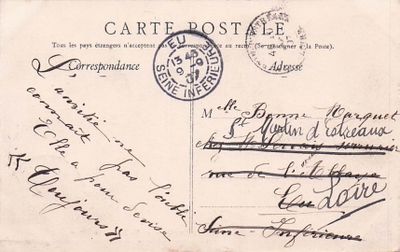 CARTE POSTALE
Tous les pays étrangers n'acceptent pas la correspondance au recto. (Se renseigner à la Poste).
Correspondance
Adresse
EU
13 45
9 - 9
07
SEINE INFERIEURE
L'amitié ne
connaît pas l'oubli
Elle a pour devise
Toujours
Melle Bonne Marquet
St Martin d'Estréaux
chez Mr
rue de l'Abbaye
Eu Loire
Seine Inférieure